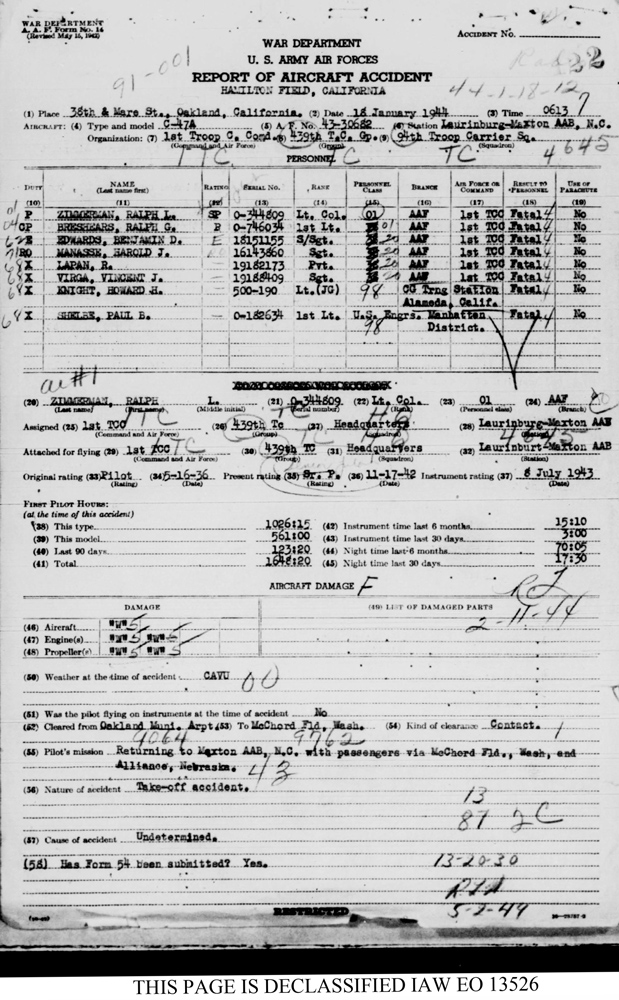 WAR DEPARTMENT
A. A. F. Form No. 14
(Revised May 15, 1942)
ACCIDENT No.
WAR DEPARTMENT
U. S. ARMY AIR FORCES
22
91-001
REPORT OF AIRCRAFT ACCIDENT
HAMILTON FIELD, CALIFORNIA
44-1-18-12
(1) Place 38th & Mare St., Oakland, California. (2) Date 18 January 1944 (3) Time 0613
AIRCRAFT: (4) Type and model C-47A (5) A. F. No. 43-30682 (6) Station Laurinburg-Maxton AAB, N.C.
Organization: (7) 1st Troop C. Comd. (8) 439th T.C. Gp. (9) 94th Troop Carrier Sq.
(Command and Air Force) (Group) (Squadron)
TTC TC TC 4643
PERSONNEL
DUTY NAME (Last name first) RATING SERIAL NO. RANK PERSONNEL CLASS BRANCH AIR FORCE OR COMMAND RESULT TO PERSONNEL USE OF PARACHUTE
(10) (11) (12) (13) (14) (15) (16) (17) (18) (19)
01 P ZIMMERMAN, RALPH L. SP 0-344809 Lt. Col. 01 AAF 1st TCC Fatal 4 No
CP BRESHEARS, RALPH G. P 0-746034 1st Lt. 01 AAF 1st TCC Fatal 4 No
E EDWARDS, BENJAMIN D. E 18151155 S/Sgt. 20 AAF 1st TCC Fatal 4 No
RO MANASSE, HAROLD J. 16143860 Sgt. 20 AAF 1st TCC Fatal 4 No
68 X LAPAN, R. 19182173 Pvt. 20 AAF 1st TCC Fatal No
68 X VIRGA, VINCENT J. 19188409 Sgt. 20 AAF 1st TCC Fatal No
68 X KNIGHT, HOWARD H. 500-190 Lt.(JG) 98 CG Trng Station Fatal No
Alameda, Calif.
68 X SHELBE, PAUL B. 0-182634 1st Lt. U.S. Engrs. Manhattan Fatal No
98 District.
#1
(20) ZIMMERMAN, RALPH L. (21) 0-344809 (22) Lt. Col. (23) 01 (24) AAF
(Last name) (First name) (Middle initial) (Serial number) (Rank) (Personnel class) (Branch)
Assigned (25) 1st TCC (26) 439th Tc (27) Headquarters (28) Laurinburg-Maxton AAB
(Command and Air Force) (Group) (Squadron) (Station)
Attached for flying (29) 1st TCC (30) 439th TC (31) Headquarters (32) Laurinburt-Maxton AAB
(Command and Air Force) (Group) (Squadron) (Station)
Original rating (33) Pilot (34) 5-16-36 Present rating (35) Sr. P. (36) 11-17-42 Instrument rating (37) 8 July 1943
(Rating) (Date) (Rating) (Date) (Date)
FIRST PILOT HOURS:
(at the time of this accident)
(38) This type 1026:15 (42) Instrument time last 6 months 15:10
(39) This model 561:00 (43) Instrument time last 30 days 3:00
(40) Last 90 days 123:20 (44) Night time last 6 months 70:05
(41) Total 1648:20 (45) Night time last 30 days 17:30
AIRCRAFT DAMAGE F
DAMAGE (49) LIST OF DAMAGED PARTS
2-11-44
(46) Aircraft "W" 5
(47) Engine(s) "W" 5 "W" 5
(48) Propeller(s) "W" 5 "W" 5
(50) Weather at the time of accident CAVU 00
(51) Was the pilot flying on instruments at the time of accident No
(52) Cleared from Oakland Muni. Arpt (53) To McChord Fld. Wash. (54) Kind of clearance Contact.
9064 9762
(55) Pilot's mission Returning to Maxton AAB, N.C. with passengers via McChord Fld., Wash, and
Alliance, Nebraska. 43
(56) Nature of accident Take-off accident.
13
87 2C
(57) Cause of accident Undetermined.
(58) Has Form 54 been submitted? Yes. 13-20-30
RESTRICTED
5-2-44
THIS PAGE IS DECLASSIFIED IAW EO 13526